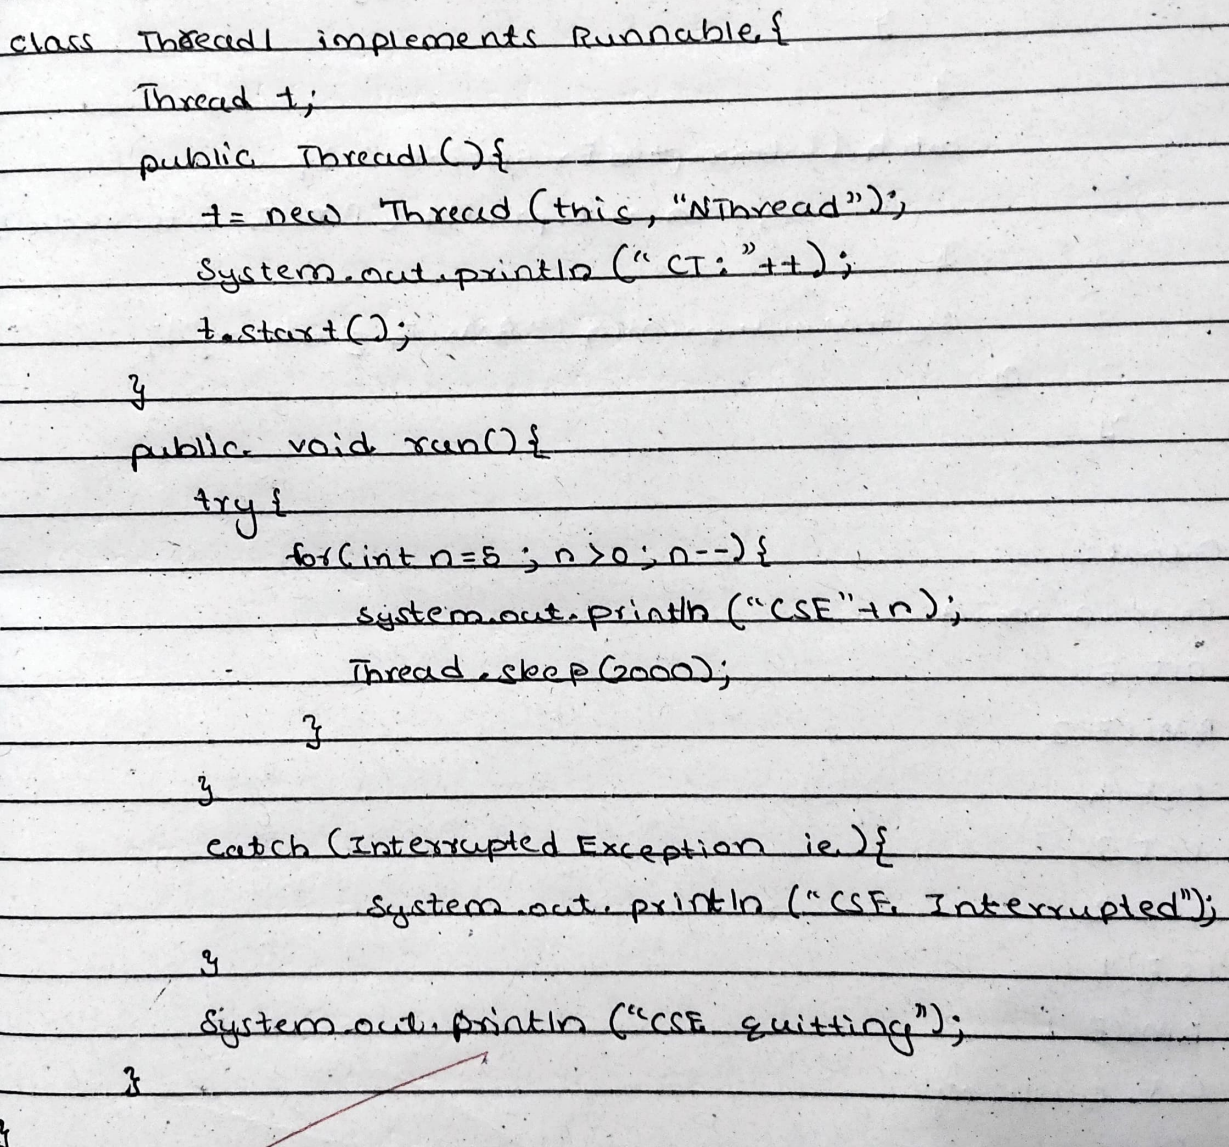 class Thread1 implements Runnable{
Thread t;
public Thread1(){
t= new Thread (this, "NThread");
System.out.println ("CT:"+t);
t.start();
}
public void run(){
try {
for(int n=5; n>0; n--){
system.out.println ("CSE"+n);
Thread.sleep(2000);
}
}
catch (Interrupted Exception ie){
System.out.println ("CSE Interrupted");
}
System.out.println ("CSE quitting");
}
}